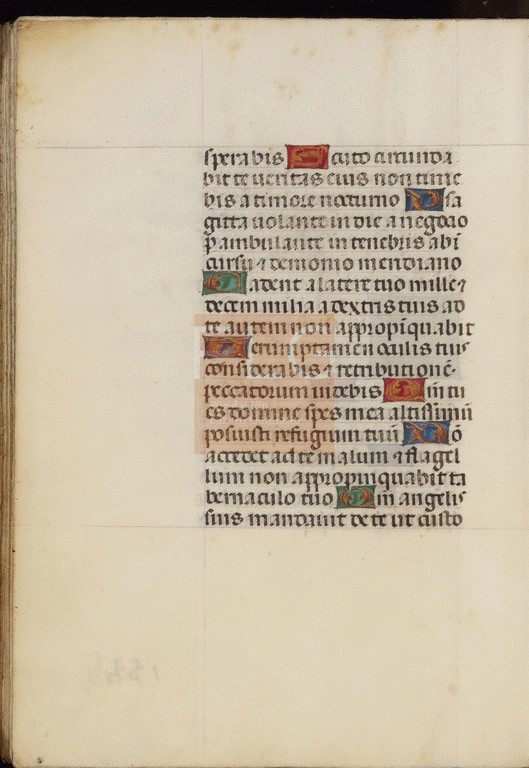 sperabis Scuto circunda
bit te ueritas eius non time
bis a timore nocturno A sa
gitta uolante in die a negocio
p̄ambulante in tenebris ab ī
cursu ⁊ demonio meridiano
Cadent a latere tuo mille ⁊
decem milia a dextris tuis ad
te autem non appropīquabit
Uerumptamen oculis tuis
considerabis ⁊ retributionē
peccatorum uidebis Qm̄ tu
es domine spes mea altissimū
posuisti refugium tuū Nō
accedet ad te malum ⁊ flagel
lum non appropinquabit ta
bernaculo tuo Qm̄ angelis
suis mandauit de te ut custo